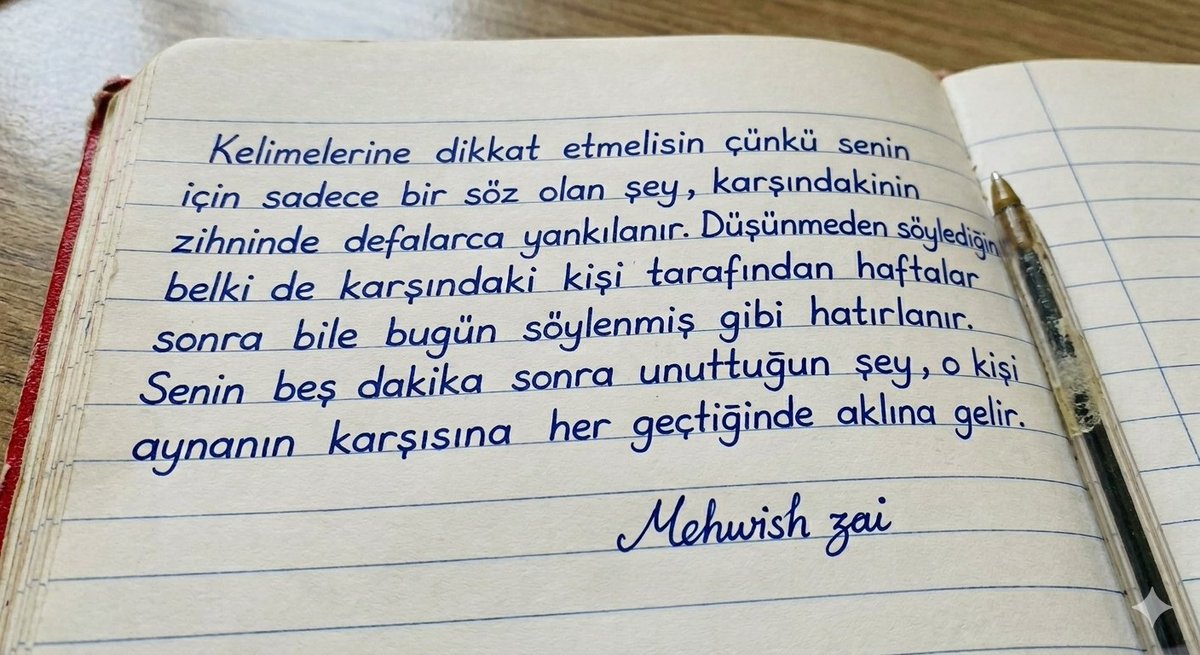 Kelimelerine dikkat etmelisin çünkü senin
için sadece bir söz olan şey, karşındakinin
zihninde defalarca yankılanır. Düşünmeden söylediğin
belki de karşındaki kişi tarafından haftalar
sonra bile bugün söylenmiş gibi hatırlanır.
Senin beş dakika sonra unuttuğun şey, o kişi
aynanın karşısına her geçtiğinde aklına gelir.
Mehwish zai